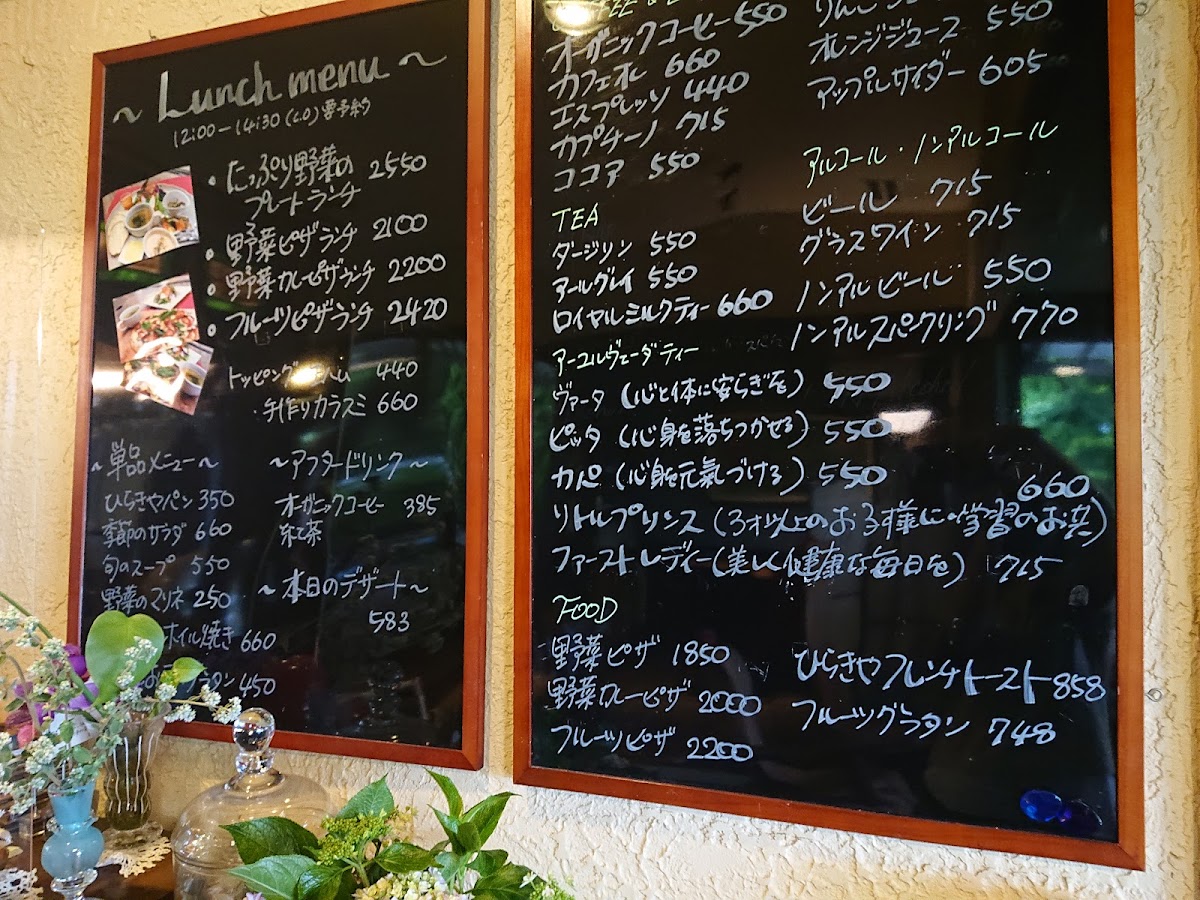 ~ Lunch menu ~
12:00-14:30 (L.O) 要予約
・たっぷり野菜の
プレートランチ 2550
・野菜ピザランチ 2100
・野菜カレーピザランチ 2200
・フルーツピザランチ 2420
トッピング 440
・手作りカラスミ 660
~単品メニュー~
ひらきやパン 350
季節のサラダ 660
旬のスープ 550
野菜のマリネ 250
ホイル焼き 660
グラタン 450
~アフタードリンク~
オーガニックコーヒー 385
紅茶
~本日のデザート~
583
オーガニックコーヒー 550
カフェオレ 660
エスプレッソ 440
カプチーノ 715
ココア 550
TEA
ダージリン 550
アールグレイ 550
ロイヤルミルクティー 660
アーユルヴェーダティー
ヴァータ (心と体に安らぎを) 550
ピッタ (心身を落ちつかせる) 550
カパ (心身を元氣づける) 550
660
リトルプリンス (3才以上のお子様に・学習のお共)
ファーストレディー (美しく健康な毎日を) 715
FOOD
野菜ピザ 1850
野菜カレーピザ 2000
フルーツピザ 2200
オレンジジュース 550
アップルサイダー 605
アルコール・ノンアルコール
ビール 715
グラスワイン 715
ノンアルビール 550
ノンアルスパークリング 770
ひらきやフレンチトースト 858
フルーツグラタン 748